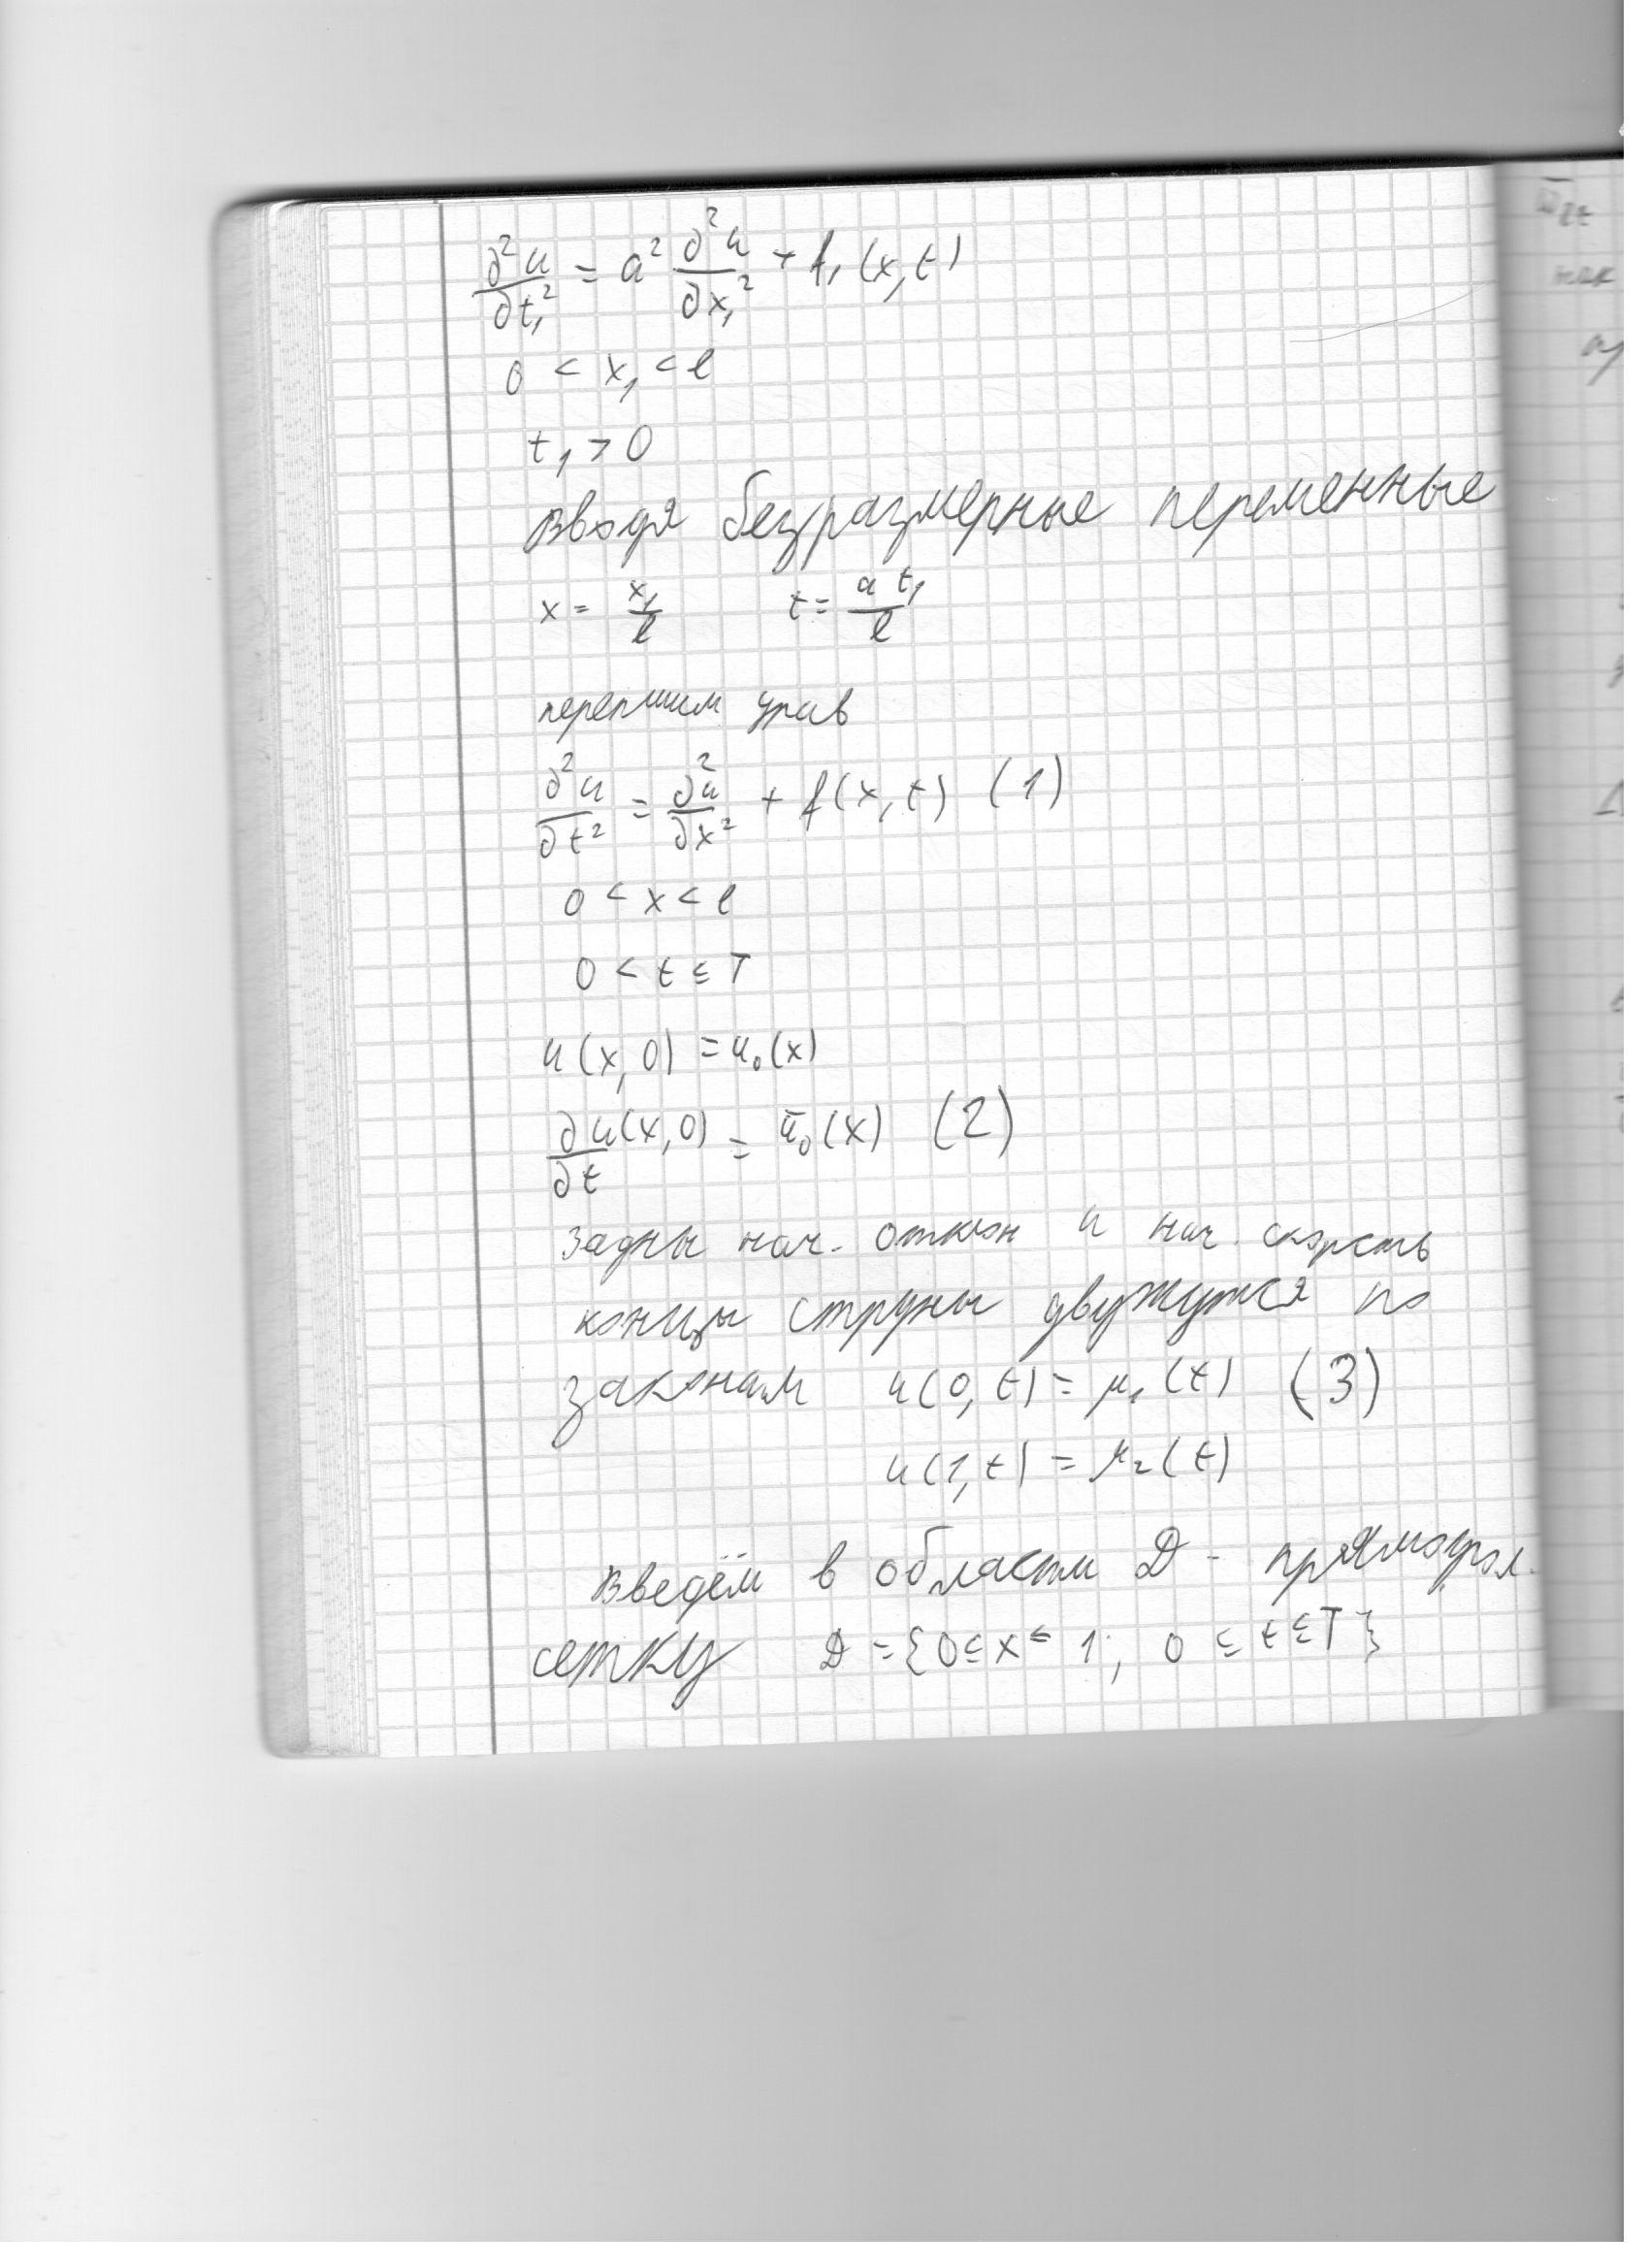 ∂²u/∂t₁² = a² ∂²u/∂x₁² + f₁(x,t)
0 < x₁ < l
t₁ > 0
Вводя безразмерные переменные
x = x₁/l t = a t₁/l
перепишем урав
∂²u/∂t² = ∂²u/∂x² + f(x,t) (1)
0 < x < l
0 < t ≤ T
u(x,0) = u₀(x)
∂u(x,0)/∂t = ū₀(x) (2)
Задны нач. отклон и нач. скорсть
концы струны движутся по
законам u(0,t) = μ₁(t) (3)
u(1,t) = μ₂(t)
Введём в области D - прямоугол.
сетку D = {0≤x≤1; 0≤t≤T}